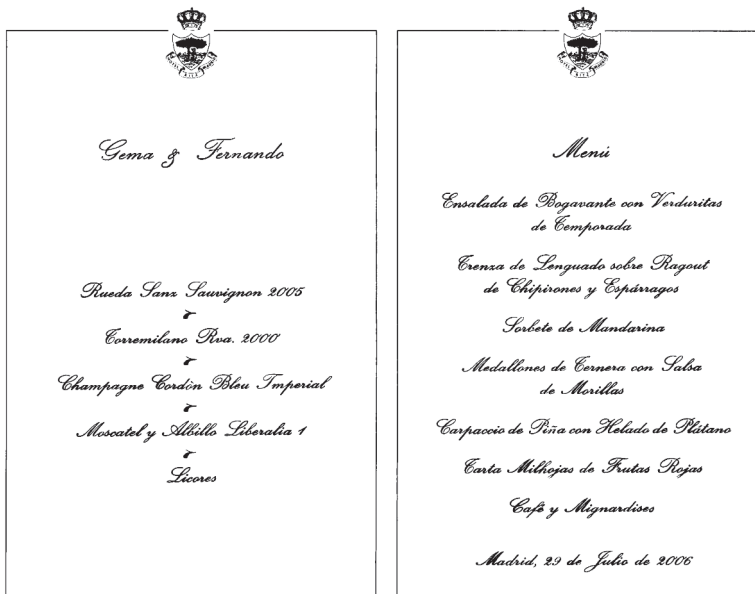 Gema & Fernando
Rueda Sanz Sauvignon 2005
Torremilano Rva. 2000
Champagne Cordòn Bleu Imperial
Moscatel y Albillo Liberalia 1
Licores
Menú
Ensalada de Bogavante con Verduritas
de Temporada
Trenza de Lenguado sobre Ragout
de Chipirones y Espárragos
Sorbete de Mandarina
Medallones de Ternera con Salsa
de Morillas
Carpaccio de Piña con Helado de Plátano
Tarta Milhojas de Frutas Rojas
Café y Mignardises
Madrid, 29 de Julio de 2006